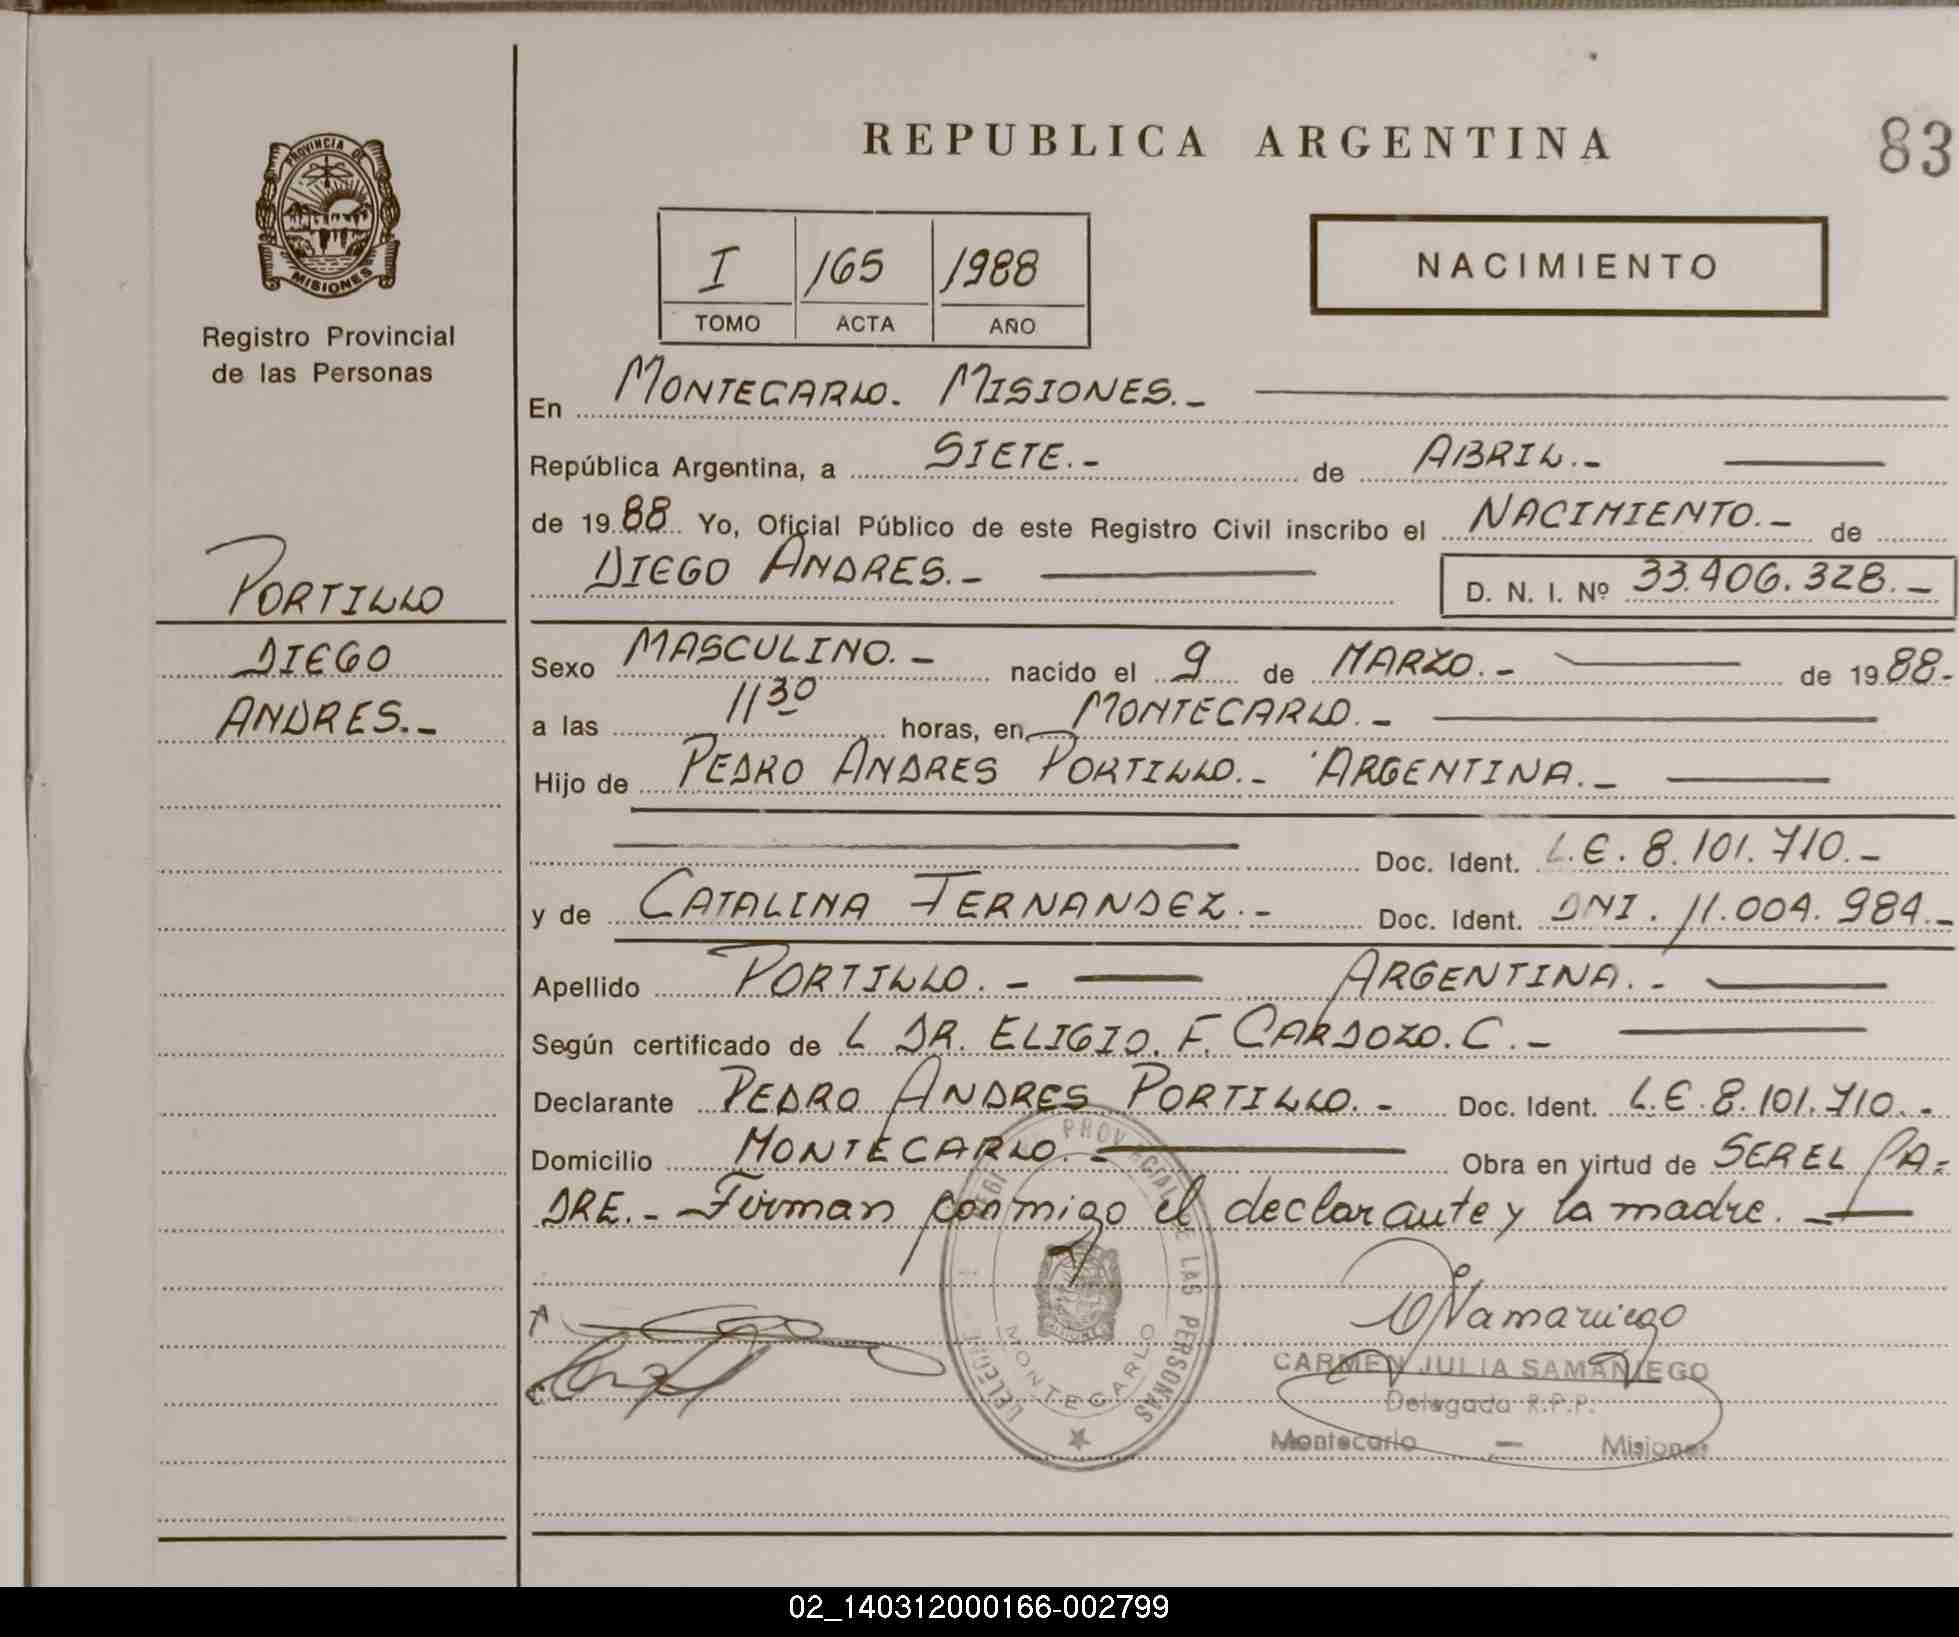 REPUBLICA ARGENTINA
83
PROVINCIA DE
MISIONES
Registro Provincial
de las Personas
I 165 1988
TOMO ACTA AÑO
NACIMIENTO
PORTILLO
DIEGO
ANDRES.-
En MONTECARLO. MISIONES.-
República Argentina, a SIETE.- de ABRIL.-
de 1988 Yo, Oficial Público de este Registro Civil inscribo el NACIMIENTO.- de
DIEGO ANDRES.- D. N. I. Nº 33.406.328.-
Sexo MASCULINO.- nacido el 9 de MARZO.- de 1988.-
a las 11 30 horas, en MONTECARLO.-
Hijo de PEDRO ANDRES PORTILLO.- ARGENTINA.-
Doc. Ident. L.E. 8.101.710.-
y de CATALINA FERNANDEZ.- Doc. Ident. DNI. 11.004.984.-
Apellido PORTILLO.- ARGENTINA.-
Según certificado de L DR. ELIGIO. F. CARDOZO. C.-
Declarante PEDRO ANDRES PORTILLO.- Doc. Ident. L.E. 8.101.710.-
Domicilio MONTECARLO.- Obra en virtud de SER EL PA=
DRE.- Firman conmigo el declarante y la madre.-
PROVINCIAL DE LAS PERSONAS
MONTECARLO
CARMEN JULIA SAMANIEGO
Delegada R.P.P.
Montecarlo - Misiones
02_140312000166-002799